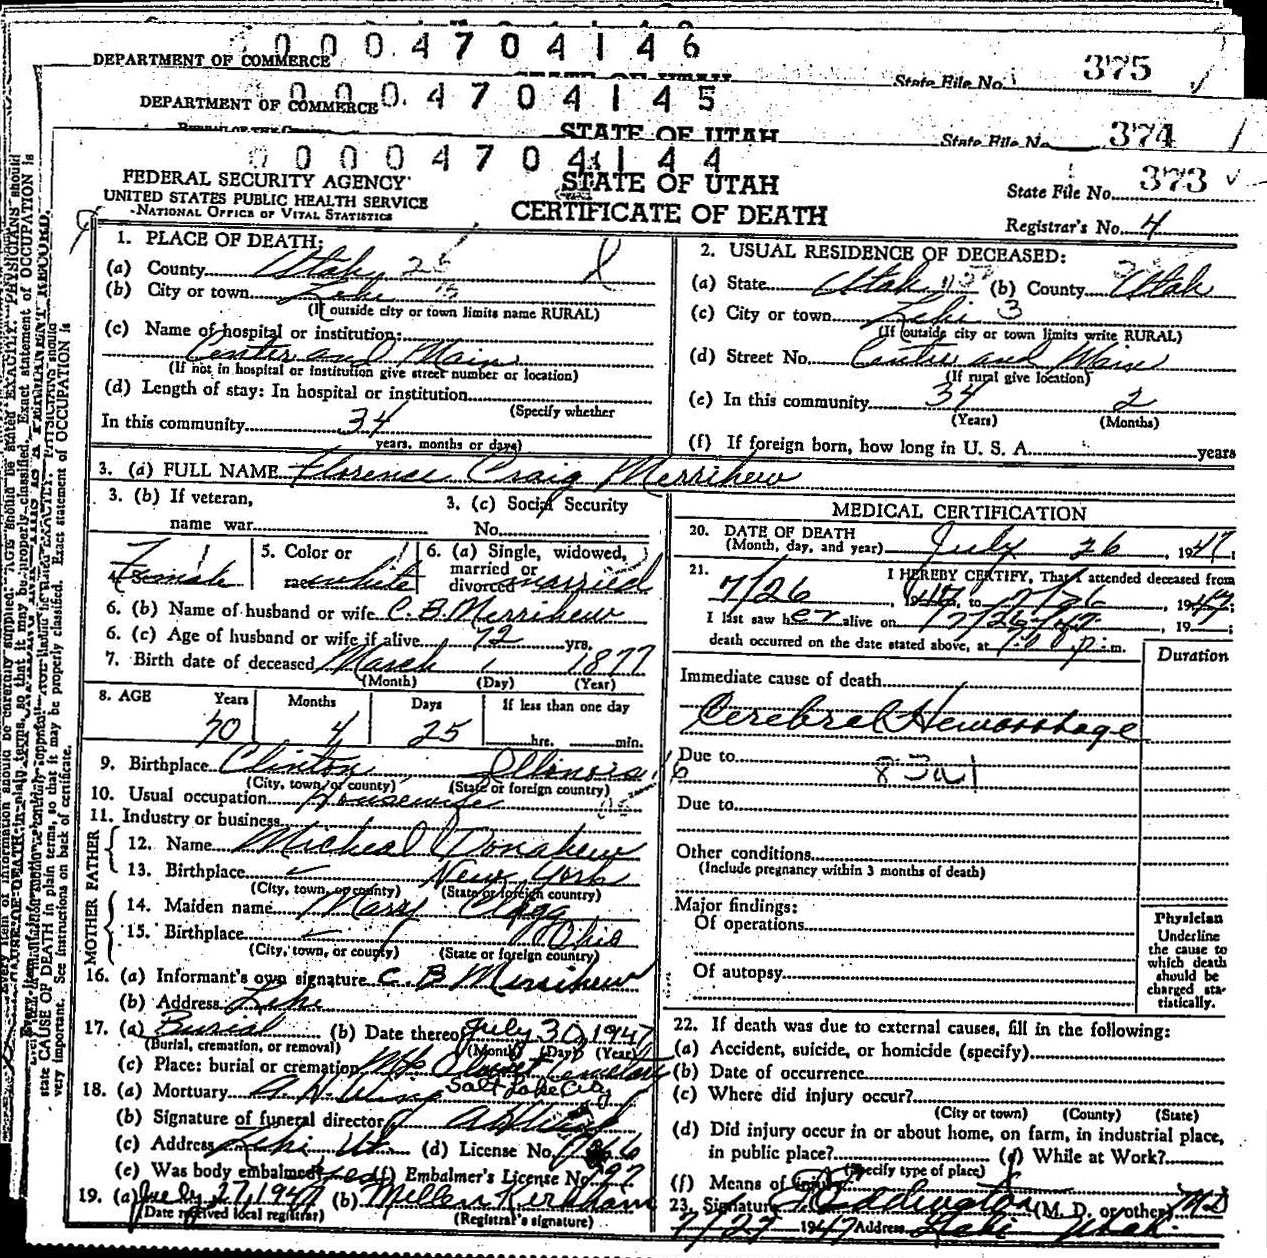 0004704146
DEPARTMENT OF COMMERCE
State File No. 375
0000.4704145
DEPARTMENT OF COMMERCE
STATE OF UTAH
State File No. 374
00004704144
FEDERAL SECURITY AGENCY STATE OF UTAH State File No. 373
UNITED STATES PUBLIC HEALTH SERVICE
NATIONAL OFFICE OF VITAL STATISTICS CERTIFICATE OF DEATH Registrar's No. 4
1. PLACE OF DEATH:
(a) County Utah 25
(b) City or town Lehi
(If outside city or town limits name RURAL)
(c) Name of hospital or institution:
Center and Main
(If not in hospital or institution give street number or location)
(d) Length of stay: In hospital or institution
(Specify whether
In this community 34
years, months or days)
2. USUAL RESIDENCE OF DECEASED:
(a) State Utah (b) County Utah
(c) City or town Lehi 3
(If outside city or town limits write RURAL)
(d) Street No. Center and Main
(If rural give location)
(e) In this community 34 2
(Years) (Months)
(f) If foreign born, how long in U. S. A. years
3. (a) FULL NAME Florence Craig Merrihew
3. (b) If veteran,
name war
3. (c) Social Security
No.
4. Sex Female
5. Color or
race white
6. (a) Single, widowed,
married or
divorced married
6. (b) Name of husband or wife C. B. Merrihew
6. (c) Age of husband or wife if alive 72 yrs.
7. Birth date of deceased March 1 1877
(Month) (Day) (Year)
8. AGE Years Months Days If less than one day
70 4 25 hrs. min.
9. Birthplace Clinton Illinois
(City, town, or county) (State or foreign country)
10. Usual occupation Housewife
11. Industry or business
FATHER
12. Name Micheal Donahew
13. Birthplace New York
(City, town, or county) (State or foreign country)
MOTHER
14. Maiden name Mary
15. Birthplace Ohio
(City, town, or county) (State or foreign country)
16. (a) Informant's own signature C B Merrihew
(b) Address Lehi
17. (a) Burial (b) Date thereof July 30, 1947
(Burial, cremation, or removal) (Month) (Day) (Year)
(c) Place: burial or cremation Mt Olivet Cemetery
Salt Lake City
18. (a) Mortuary A. H. Wing
(b) Signature of funeral director
(c) Address Lehi Ut (d) License No.
(e) Was body embalmed yes (f) Embalmer's License No. 297
19. (a) July 27, 1947 (b) Millen Kirkham
(Date received local registrar) (Registrar's signature)
MEDICAL CERTIFICATION
20. DATE OF DEATH
(Month, day, and year) July 26, 1947;
21. I HEREBY CERTIFY, That I attended deceased from
7/26, 1947, to 7/26, 1947;
I last saw her alive on 7/26/47, 19;
death occurred on the date stated above, at p. m.
Duration
Immediate cause of death
Cerebral Hemorrhage
Due to
83a1
Due to
Other conditions
(Include pregnancy within 3 months of death)
Major findings:
Of operations
Of autopsy
Physician
Underline
the cause to
which death
should be
charged sta-
tistically.
22. If death was due to external causes, fill in the following:
(a) Accident, suicide, or homicide (specify)
(b) Date of occurrence
(c) Where did injury occur?
(City or town) (County) (State)
(d) Did injury occur in or about home, on farm, in industrial place,
in public place? (e) While at Work?
(Specify type of place)
(f) Means of injury
23. Signature Eddington (M. D. or other) MD
7/27 1947 Address Lehi Utah